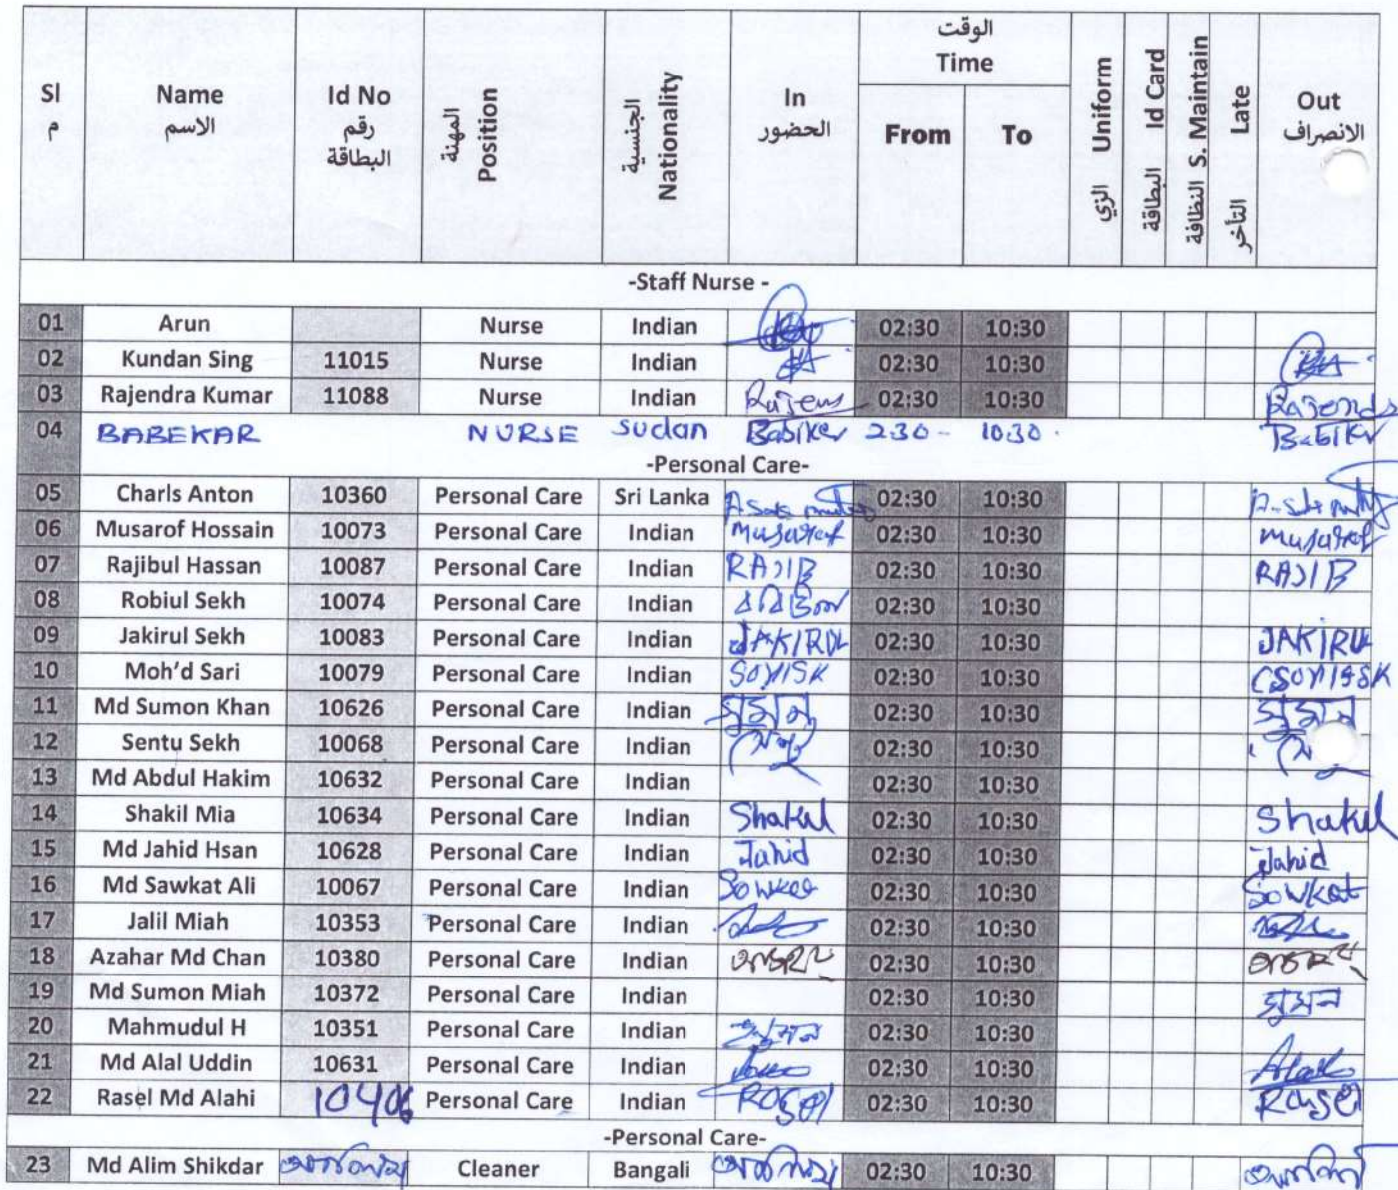 الوقت
Time
Sl Name Id No Position المهنة Nationality الجنسية In From To Uniform الزي Id Card البطاقة S. Maintain النظافة Late التأخر Out
م الاسم رقم البطاقة الحضور الانصراف
-Staff Nurse -
01 Arun Nurse Indian 02:30 10:30
02 Kundan Sing 11015 Nurse Indian 02:30 10:30
03 Rajendra Kumar 11088 Nurse Indian 02:30 10:30
04 BABEKAR NURSE Sudan Babiker 2:30 - 10:30 -
-Personal Care-
05 Charls Anton 10360 Personal Care Sri Lanka 02:30 10:30
06 Musarof Hossain 10073 Personal Care Indian 02:30 10:30
07 Rajibul Hassan 10087 Personal Care Indian RAJIB 02:30 10:30 RAJIB
08 Robiul Sekh 10074 Personal Care Indian 02:30 10:30
09 Jakirul Sekh 10083 Personal Care Indian JAKIRUL 02:30 10:30 JAKIRUL
10 Moh’d Sari 10079 Personal Care Indian 02:30 10:30
11 Md Sumon Khan 10626 Personal Care Indian 02:30 10:30
12 Sentu Sekh 10068 Personal Care Indian 02:30 10:30
13 Md Abdul Hakim 10632 Personal Care Indian 02:30 10:30
14 Shakil Mia 10634 Personal Care Indian Shakil 02:30 10:30 Shakil
15 Md Jahid Hsan 10628 Personal Care Indian Jahid 02:30 10:30 Jahid
16 Md Sawkat Ali 10067 Personal Care Indian Sowkat 02:30 10:30 Sowkat
17 Jalil Miah 10353 Personal Care Indian 02:30 10:30
18 Azahar Md Chan 10380 Personal Care Indian 02:30 10:30
19 Md Sumon Miah 10372 Personal Care Indian 02:30 10:30 সুমন
20 Mahmudul H 10351 Personal Care Indian 02:30 10:30
21 Md Alal Uddin 10631 Personal Care Indian 02:30 10:30
22 Rasel Md Alahi 10406 Personal Care Indian Rasel 02:30 10:30 Rasel
-Personal Care-
23 Md Alim Shikdar Cleaner Bangali 02:30 10:30